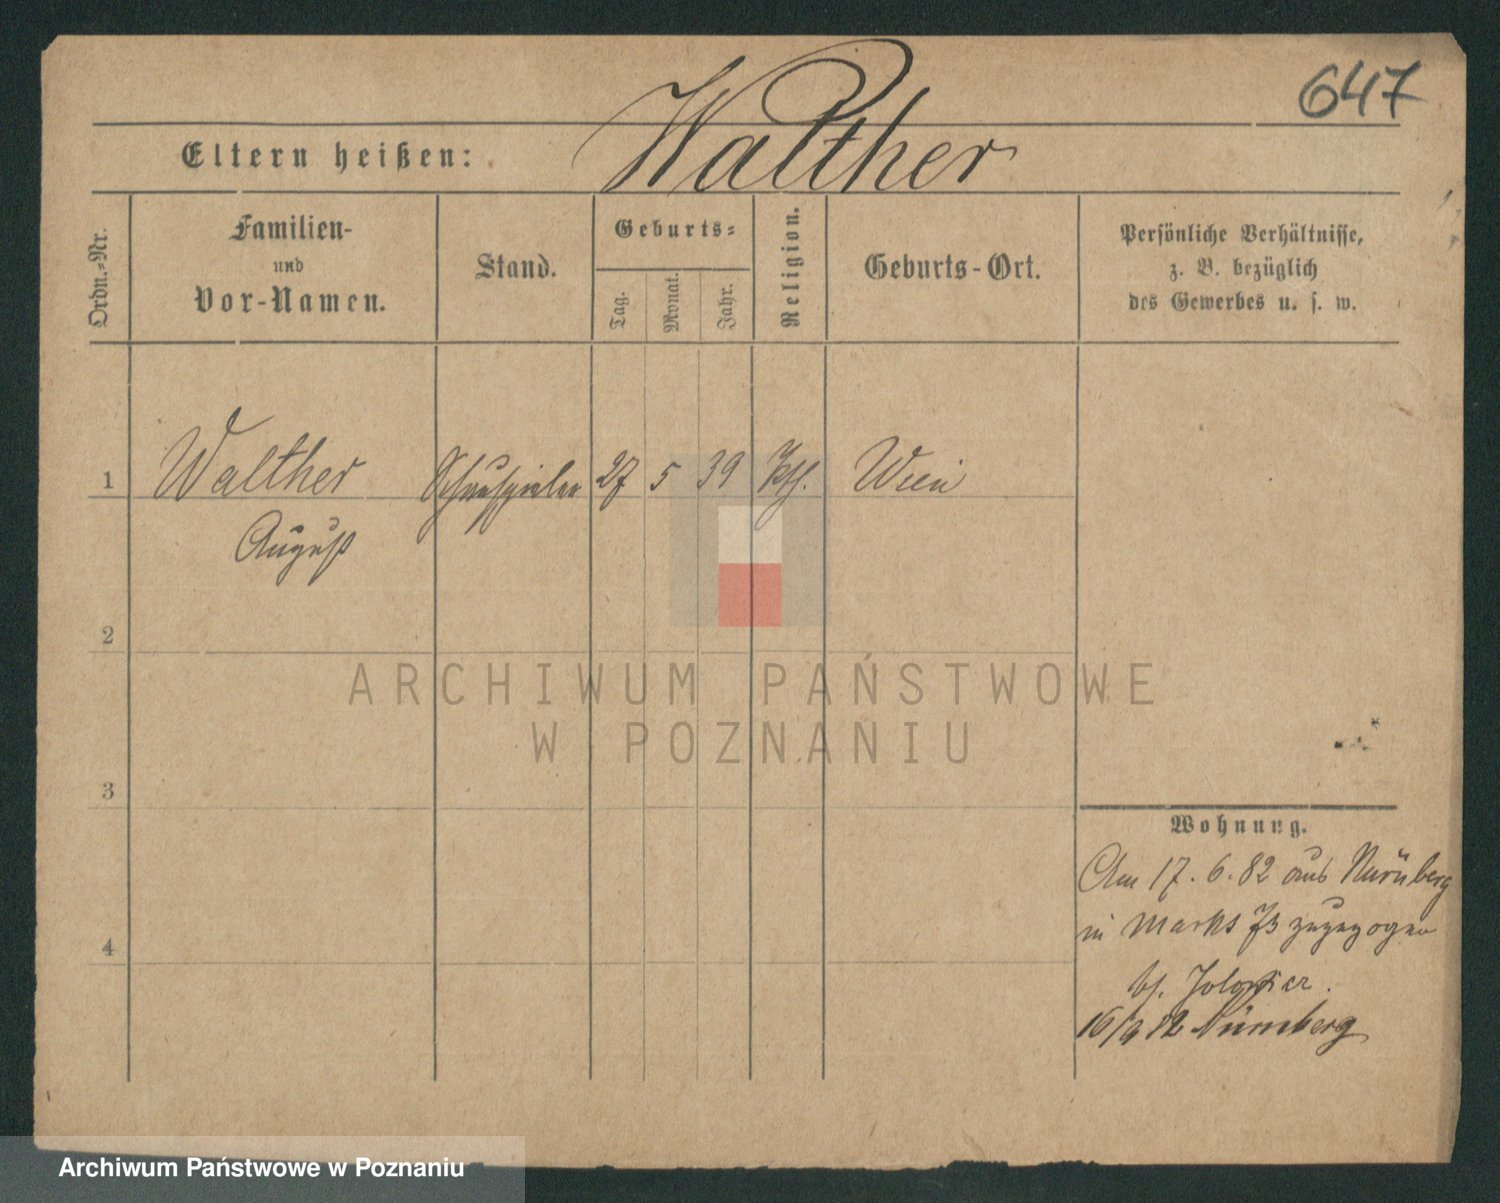 647
Eltern heißen: Walther
Ordn.-Nr.
Familien-
und
Vor-Namen.
Stand.
Geburts-
Tag.
Monat.
Jahr.
Religion.
Geburts-Ort.
Persönliche Verhältnisse,
z. B. bezüglich
des Gewerbes u. s. w.
1 Walther Schauspieler 27 5 39 kth. Wien
August
2
ARCHIWUM PAŃSTWOWE
W POZNANIU
3
Wohnung.
Am 17. 6. 82 aus Nürnberg
in Markt 73 zugezogen
bei
16/9 82 Nürnberg
4
Archiwum Państwowe w Poznaniu